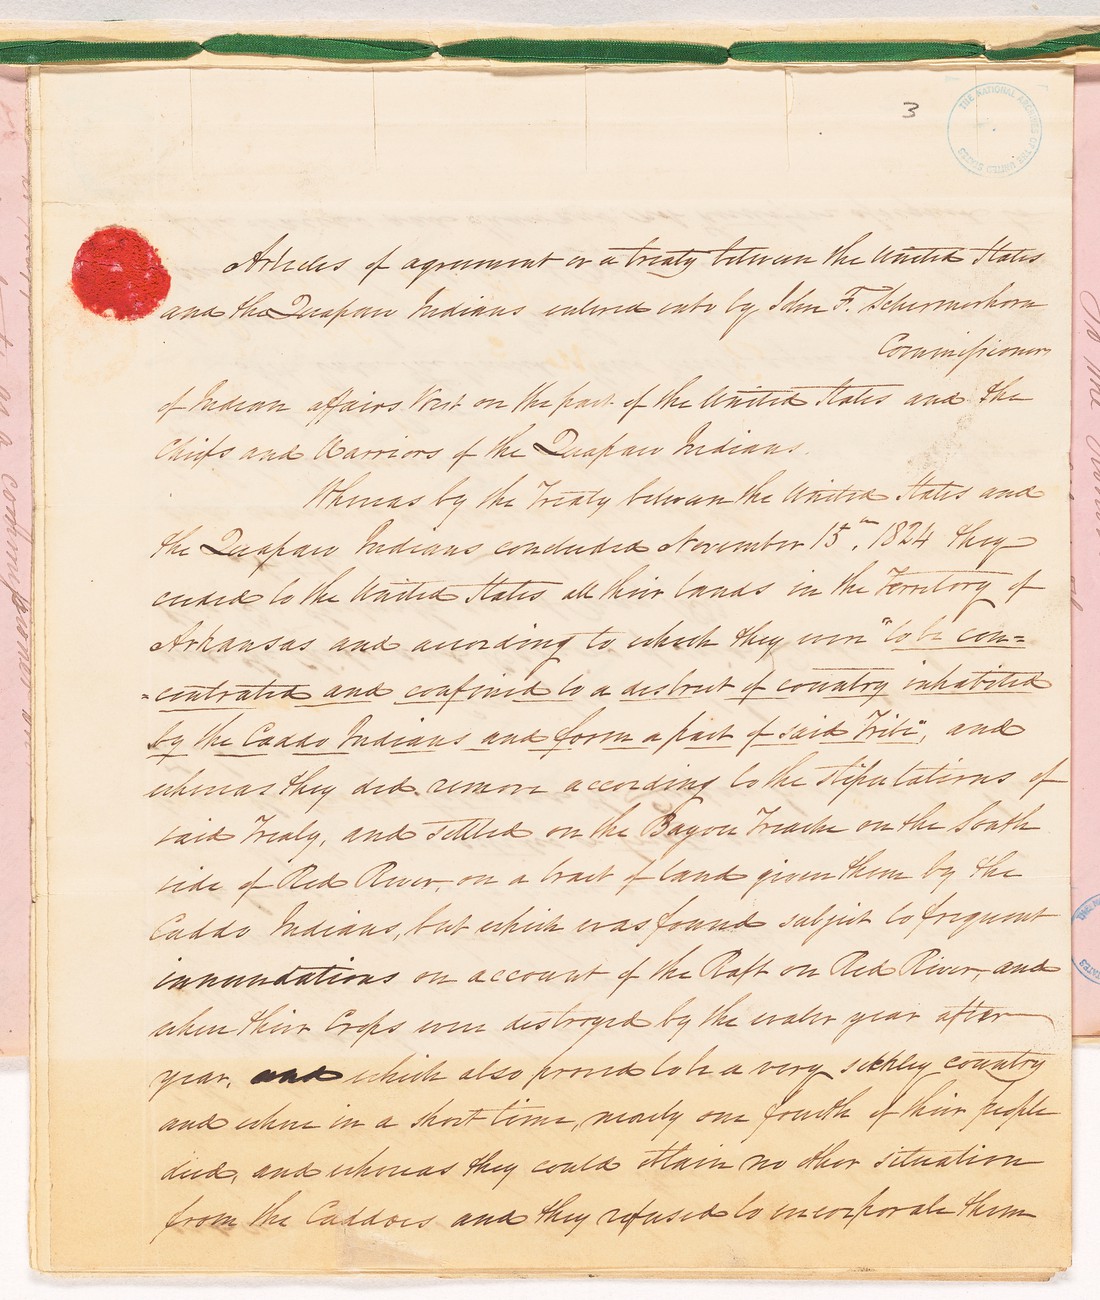 3
THE NATIONAL ARCHIVES OF THE UNITED STATES
Articles of agreement or a treaty between the United States
and the Quapaw Indians entered into by John F. Schermerhorn
Commissioner
of Indian affairs West on the part of the United States and the
Chiefs and Warriors of the Quapaw Indians.
Whereas by the Treaty between the United States and
the Quapaw Indians concluded November 15th, 1824 they
ceeded to the United States all their lands in the Territory of
Arkansas and according to which they were "to be con=
=centrated and confined to a district of country inhabited
by the Caddo Indians and form a part of said Tribe", and
whereas they did remove according to the stipulations of
said Treaty, and settled on the Bayou Treache on the South
side of Red River, on a tract of land given them by the
Caddo Indians, but which was found subject to frequent
innundations on account of the Raft on Red River, and
where their Crops were destroyed by the water year after
year, and which also proved to be a very sickly country
and where in a short time, nearly one fourth of their people
died, and whereas they could obtain no other situation
from the Caddoes and they refused to incorporate them